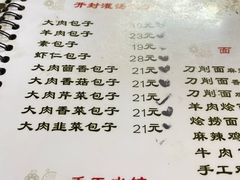 开封灌汤
大肉包子 19元
羊肉包子 23元
素包子 19元
虾仁包子 28元
大肉茴香包子 21元
大肉香菇包子 21元
大肉芹菜包子 21元
大肉香菜包子 21元
大肉韭菜包子 21元
面
刀削面
刀削面
羊肉烩
烩捞面
麻辣鸡
牛肉
手工